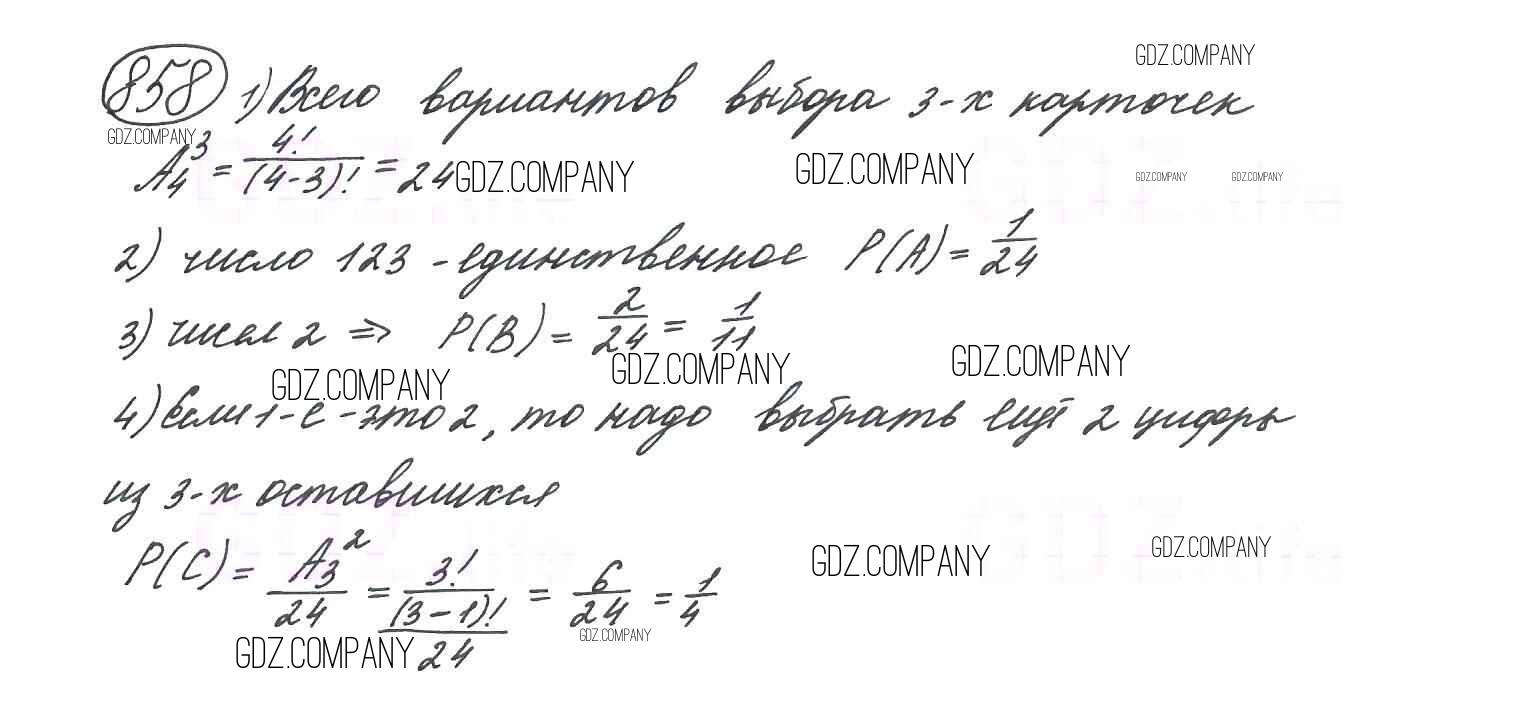 858 1) Всего вариантов выбора 3-х карточек
GDZ.COMPANY
GDZ.COMPANY
A₄³ = 4!/(4-3)! = 24 GDZ.COMPANY GDZ.COMPANY GDZ.COMPANY GDZ.COMPANY
2) число 123 - единственное P(A) = 1/24
3) чисел 2 => P(B) = 2/24 = 1/11
GDZ.COMPANY GDZ.COMPANY GDZ.COMPANY
4) Если 1-е - это 2, то надо выбрать ещё 2 цифры
из 3-х оставшихся
P(C) = A₃²/24 = 3!/(3-1)!/24 = 6/24 = 1/4
GDZ.COMPANY GDZ.COMPANY
GDZ.COMPANY GDZ.COMPANY